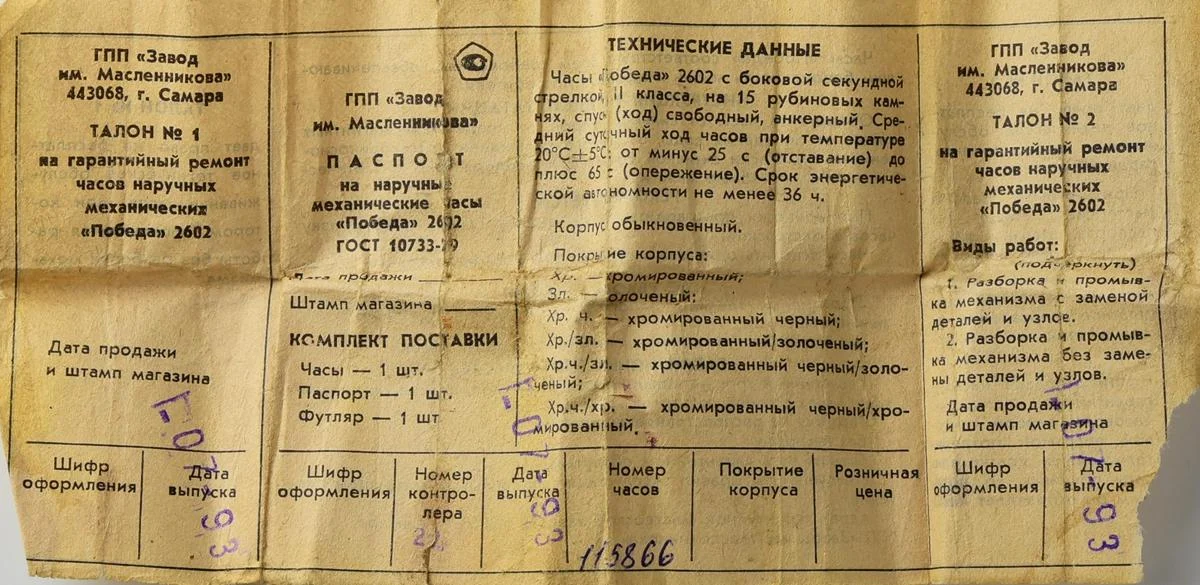 ГПП «Завод
им. Масленникова»
443068, г. Самара
ТАЛОН № 1
на гарантийный ремонт
часов наручных
механических
«Победа» 2602
Дата продажи
и штамп магазина
Шифр
оформления
Дата
выпуска
1-07-93
ГПП «Завод
им. Масленникова»
ПАСПОРТ
на наручные
механические часы
«Победа» 2602
ГОСТ 10733-79
Дата продажи
Штамп магазина
КОМПЛЕКТ ПОСТАВКИ
Часы — 1 шт.
Паспорт — 1 шт.
Футляр — 1 шт
Шифр
оформления
Номер
контро-
лера
Дата
выпуска
1-07-93
ТЕХНИЧЕСКИЕ ДАННЫЕ
Часы «Победа» 2602 с боковой секундной
стрелкой, II класса, на 15 рубиновых кам-
нях, спуск (ход) свободный, анкерный. Сре-
дний суточный ход часов при температуре
20°С±5°С: от минус 25 с (отставание) до
плюс 65 с (опережение). Срок энергетиче-
ской автономности не менее 36 ч.
Корпус обыкновенный.
Покрытие корпуса:
Хр. — хромированный;
Зл. — золоченый;
Хр. ч. — хромированный черный;
Хр./зл. — хромированный/золоченый;
Хр.ч./зл. — хромированный черный/золо-
ченый;
Хр.ч./хр. — хромированный черный/хро-
мированный.
Номер
часов
115866
Покрытие
корпуса
Розничная
цена
ГПП «Завод
им. Масленникова»
443068, г. Самара
ТАЛОН № 2
на гарантийный ремонт
часов наручных
механических
«Победа» 2602
Виды работ:
(подчеркнуть)
1. Разборка и промыв-
ка механизма с заменой
деталей и узлов.
2. Разборка и промыв-
ка механизма без заме-
ны деталей и узлов.
Дата продажи
и штамп магазина
Шифр
оформления
Дата
выпуска
1-07-93